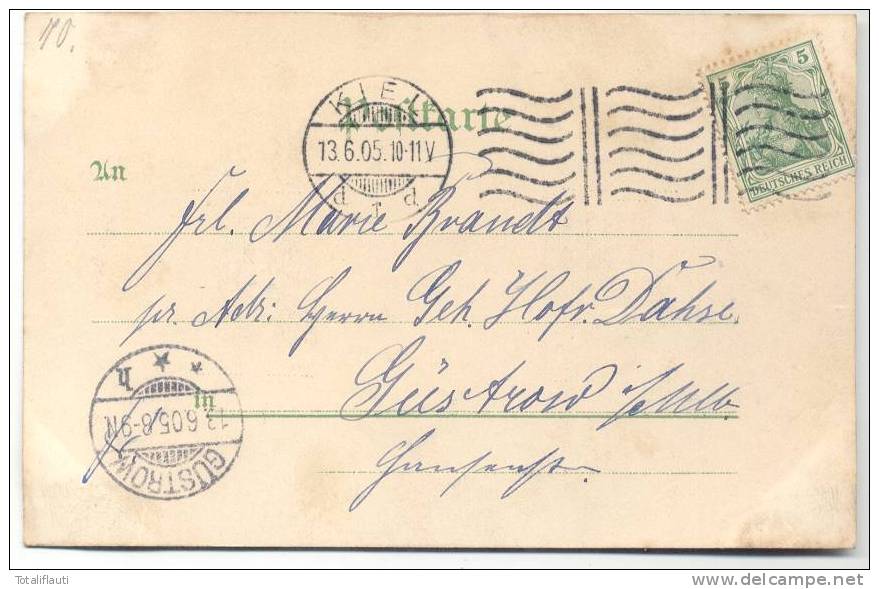 10.
Postkarte
KIEL
13.6.05.10-11V
d 1 d
5 5
DEUTSCHES REICH
An
Frl. Marie Brandt
pr. Adr: Herrn Geh. Hofr. Dahse
Güstrow i/Mlb.
In
h
13.6.05.8-9N
GÜSTROW
Totaliflauti
www.delcampe.net